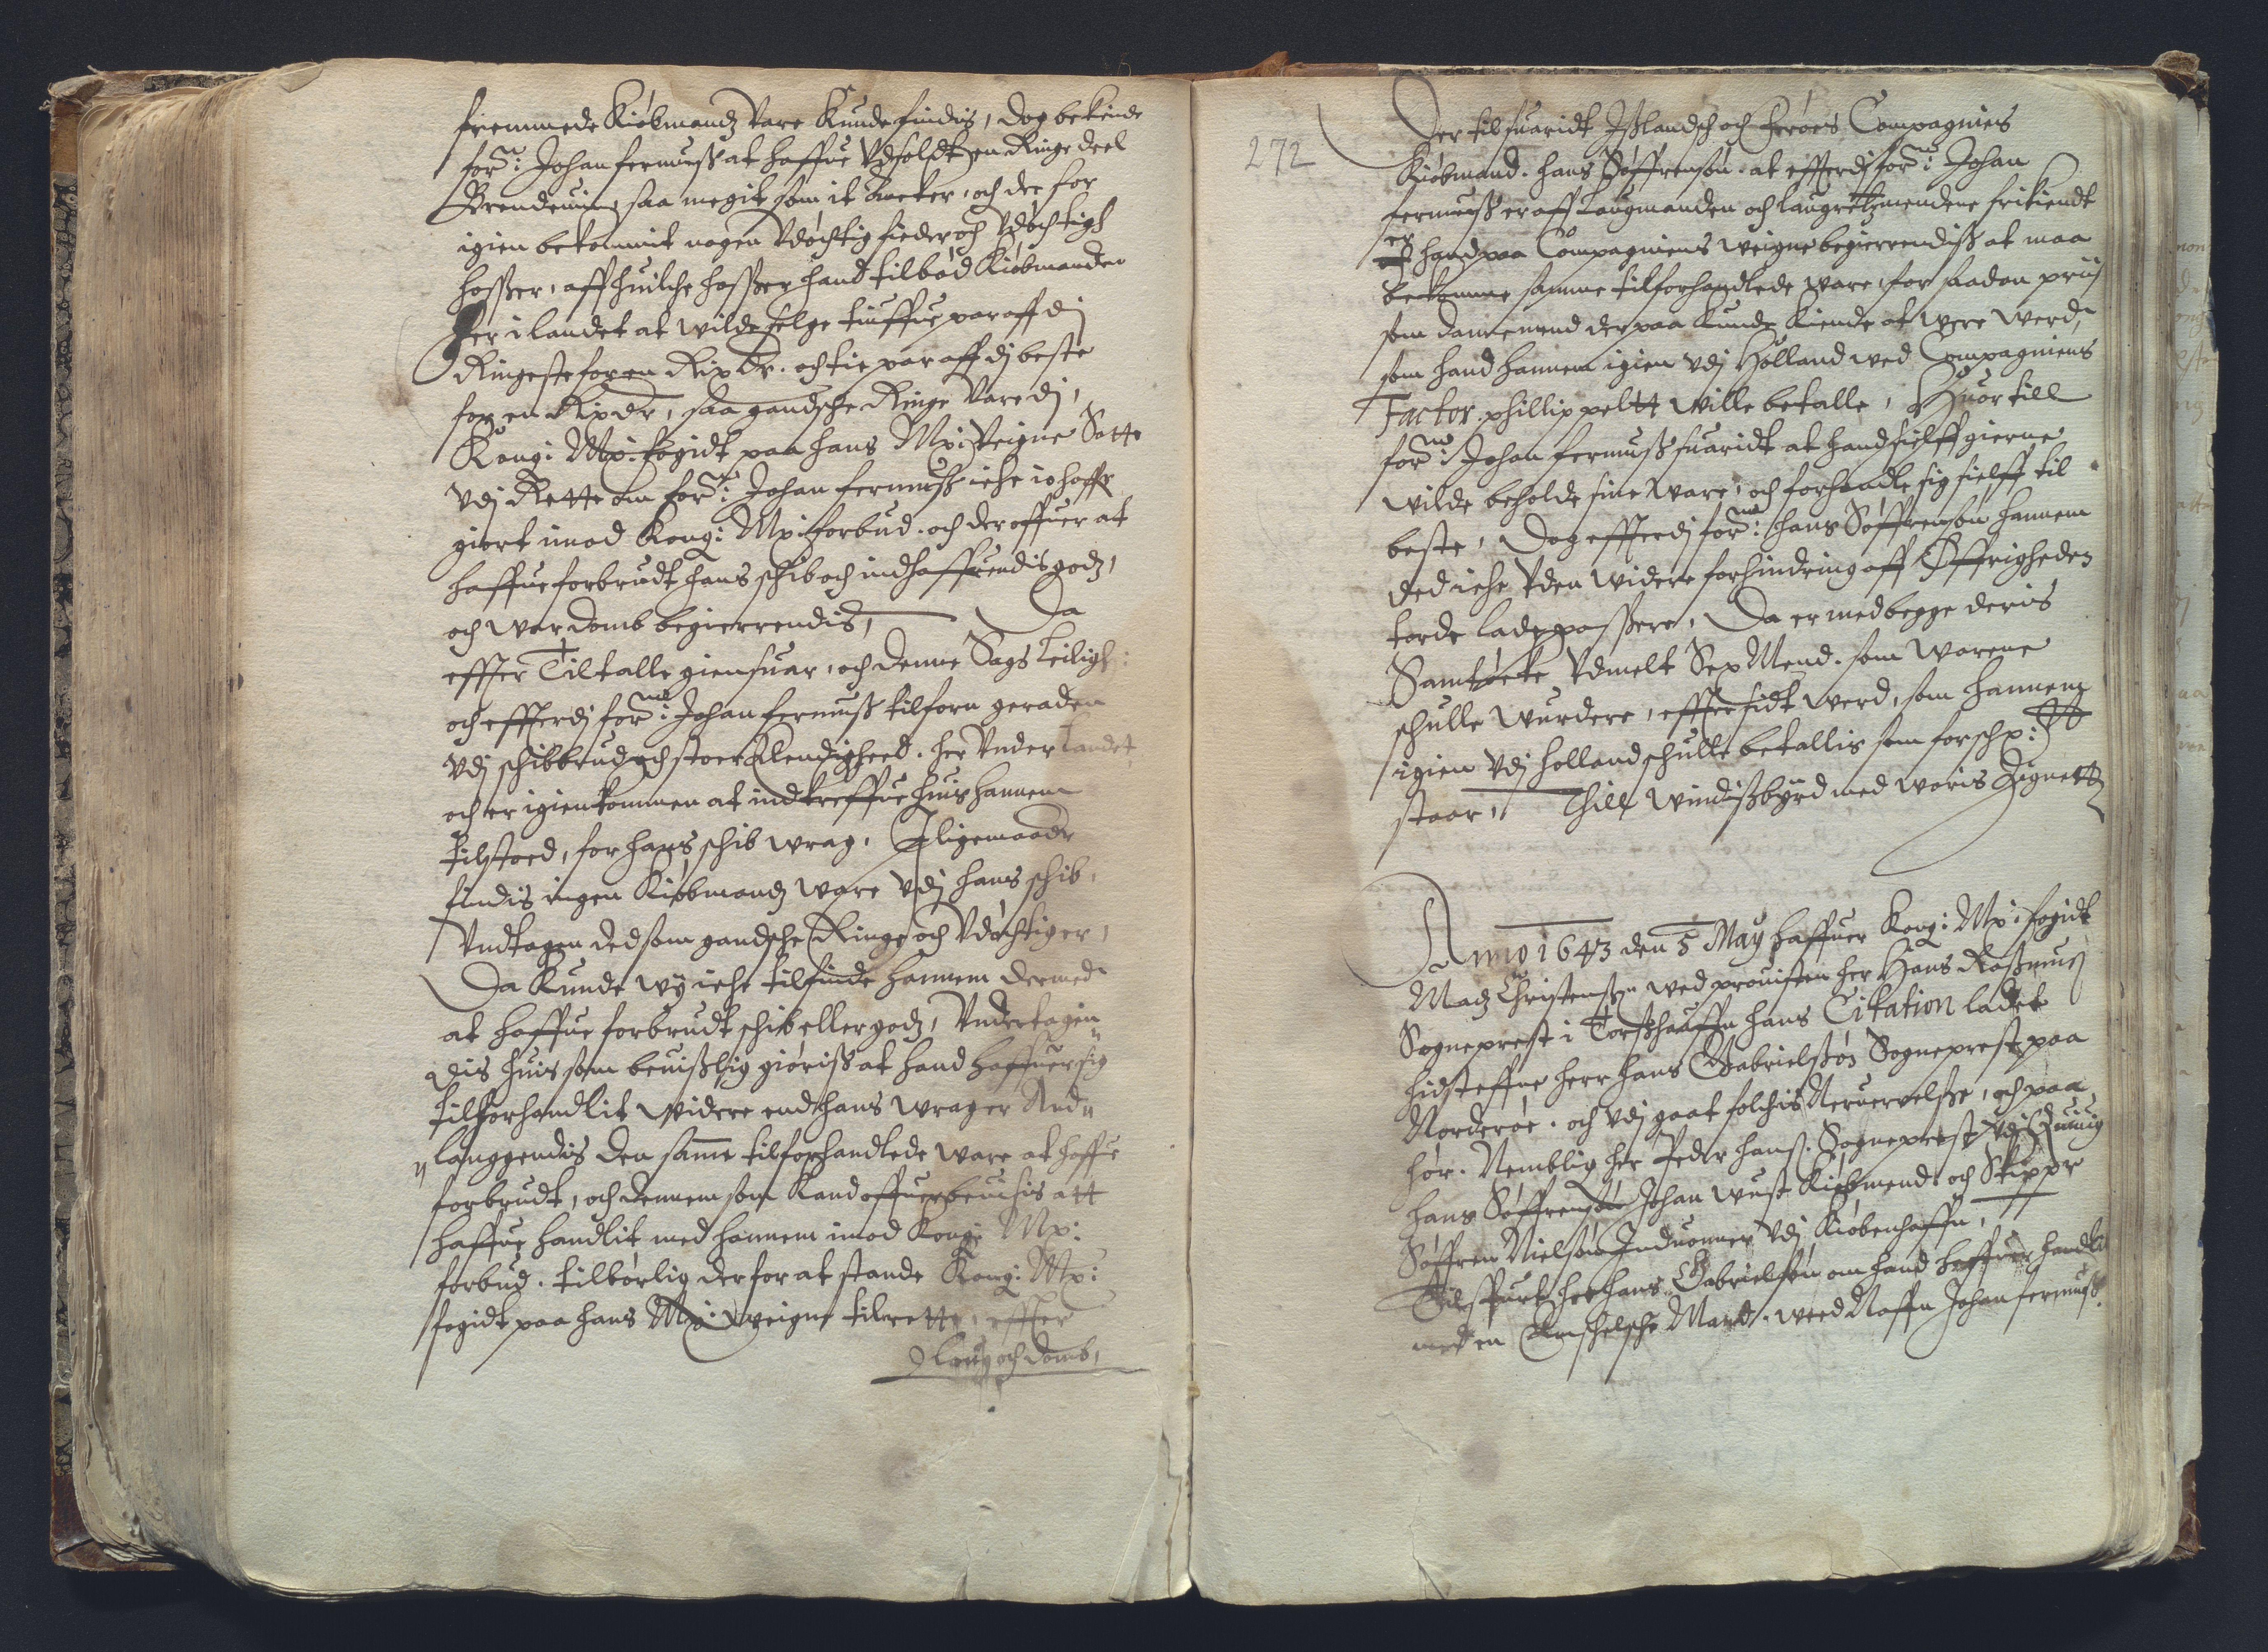 fremmede Kiøbmandz Vare Kunde findis, dog bekiende
forne: Johan fermuß at haffue Udsoldt en Ringe deel
Brendeuin, saa megit som it Ancker, och der for
igien bekommit nogen Udøchtig fieder och Udøchtige
hoßer, aff huilche hoßer hand tilbød Kiøbmanden
her i landet at wilde selge tiuffue par aff di
Ringeste for en Rix dr. och tie par aff dj beste
for en Rix dr, saa gandsche Ringe Vare dj,
Kong: May: fogidt paa hans May: Veigne Satte
Udj Rette om forne: Johan fermuß iche io haffr
giort imod Kong: May: forbud. och der offuer at
haffue forbrudt hans schib och indhaffuendis godz,
och war domb begierrendis, Da
effter Tiltalle giensuar, och denne Sags leiligh:
och effterdj forne: Johan fermuß tilforn geraden
Udj schibbrud och stoer Elendigheed. her Under landet
och er igienkommen at indkreffue huis hannem
tilstoed, for hans schib wrag, J ligemaade
findis ingen Kiøbmandz ware Udj hans schib,
Undtagen ded som gandsche Ringe och Udøchtig er,
Da Kunde wy iche tilfinde hannem dermed
at haffue forbrudt schib eller godz, Undertagen
dis huis som beuißlig giøriß at hand haffuer sig
tilforhandlit widere end hans wrag er And
langgendis den samme tilforhandlede ware at haffue
forbrudt, och dennem som Kand offuerbeuisis att
haffue handlit med hannem imod Kong: May:
forbud. tilbørlig derfor at stande Kong: May:
fogidt paa hans May: weigne tilrette, effter
Loug och domb,
272
Der til suaridt Jßlandsch och ferøes Compagniens
Kiøbmand. hans Søffrensøn. at effterdj forne: Johan
fermuß er aff Laugmanden och laugrettzmendene frikiendt
er hand paa Compagniens weigne begierrendiß at maa
bekomme samme tilforhandlede ware, for saadan priiß
som dannemend der paa Kunde Kiende at were werd,
som hand hannem igien Udj Holland wed Compagniens
Factor. phillip peltt wille betalle, Huor till
forne: Johan fermuß suaridt at hand sielff gierne
wilde beholde sine ware, och forhandle sig sielff til
beste, Dog effterdj forne: hans Søffrensøn hannem
ded iche Uden widere forhindring aff Øffrigheden
torde lade passere, Da er med begge deris
Samtøcke Udmelt Sex Mend. som warene
schulle wurdere, effter sidt werd, som hannem
igien Udj holland schulle betallis som forschr:
staar, Thill windißbyrd med woris Zignetter
Anno 1643 den 5 May haffuer Kong: May: fogidt
Madz Christensøn wed prouisten her Hans Raßmus
Sogneprest i Torßhauffn hans Citation ladet
hidsteffne herr hans Gabrielsøn Sogneprest paa
Norderøe. och Udj goet folchis Neruerelße, och paa
hør. Nemblig her Peder hans. Sogneprest Udj
hans Søffrensøn Johan wust Kiøbmend. och Skipper
Søffren Nielsøn Induonner Udj Kiøbenhaffn,
Tilspurt her hans Gabrielsøn om hand haffuer handlit
med en Engelsche Mand. weed Naffn Johan fermuß.